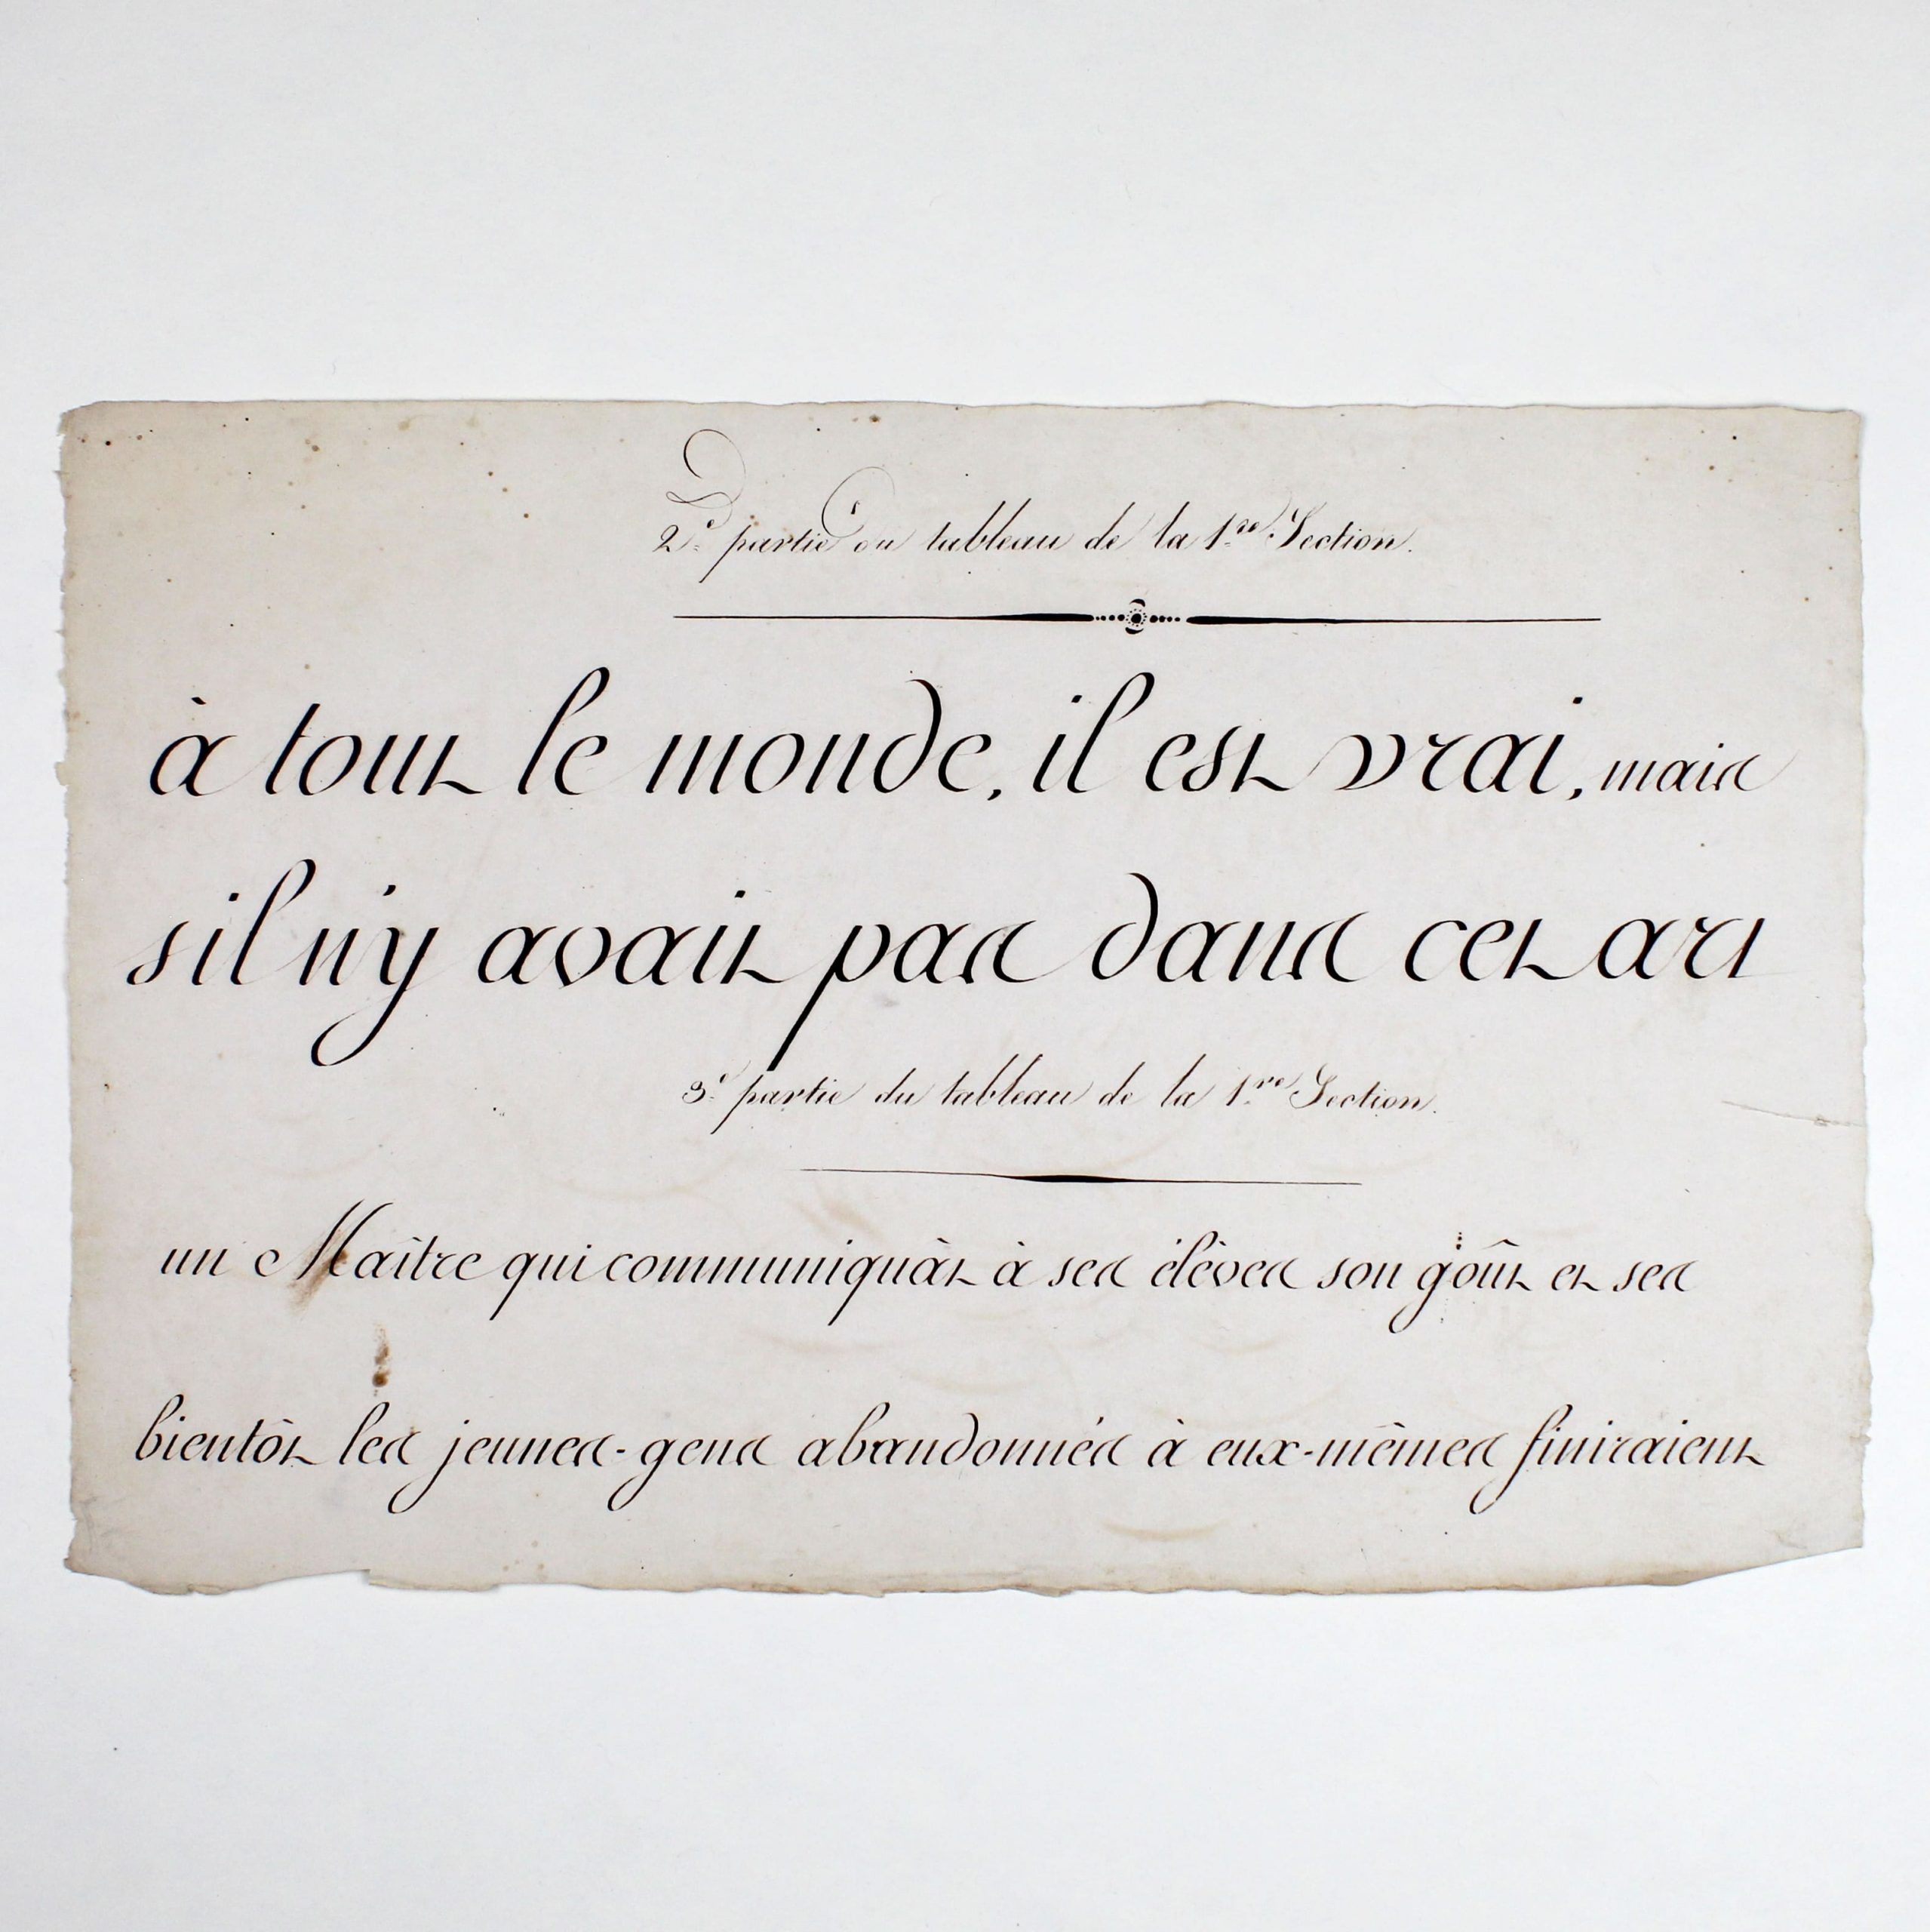 2.e partie ou tableau de la 1.re Section.
à tout le monde, il est vrai, mais
s'il n'y avait pas dans cet art
3.e partie du tableau de la 1.re Section.
un Maître qui communiquât à ses élèves son goût et ses
bientôt les jeunes-gens abandonnés à eux-mêmes finiraient